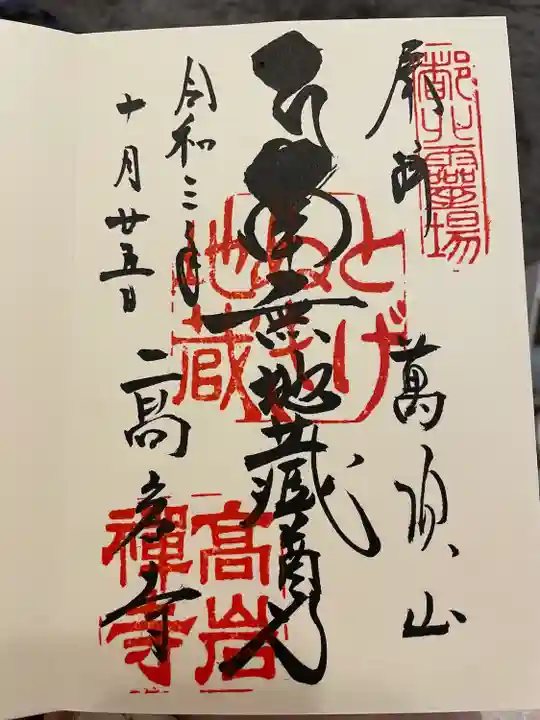 都北靈場
奉拝
萬頂山
南無地蔵尊
とげぬき地蔵
令和三年
十月廿五日
高岩寺
高岩禪寺